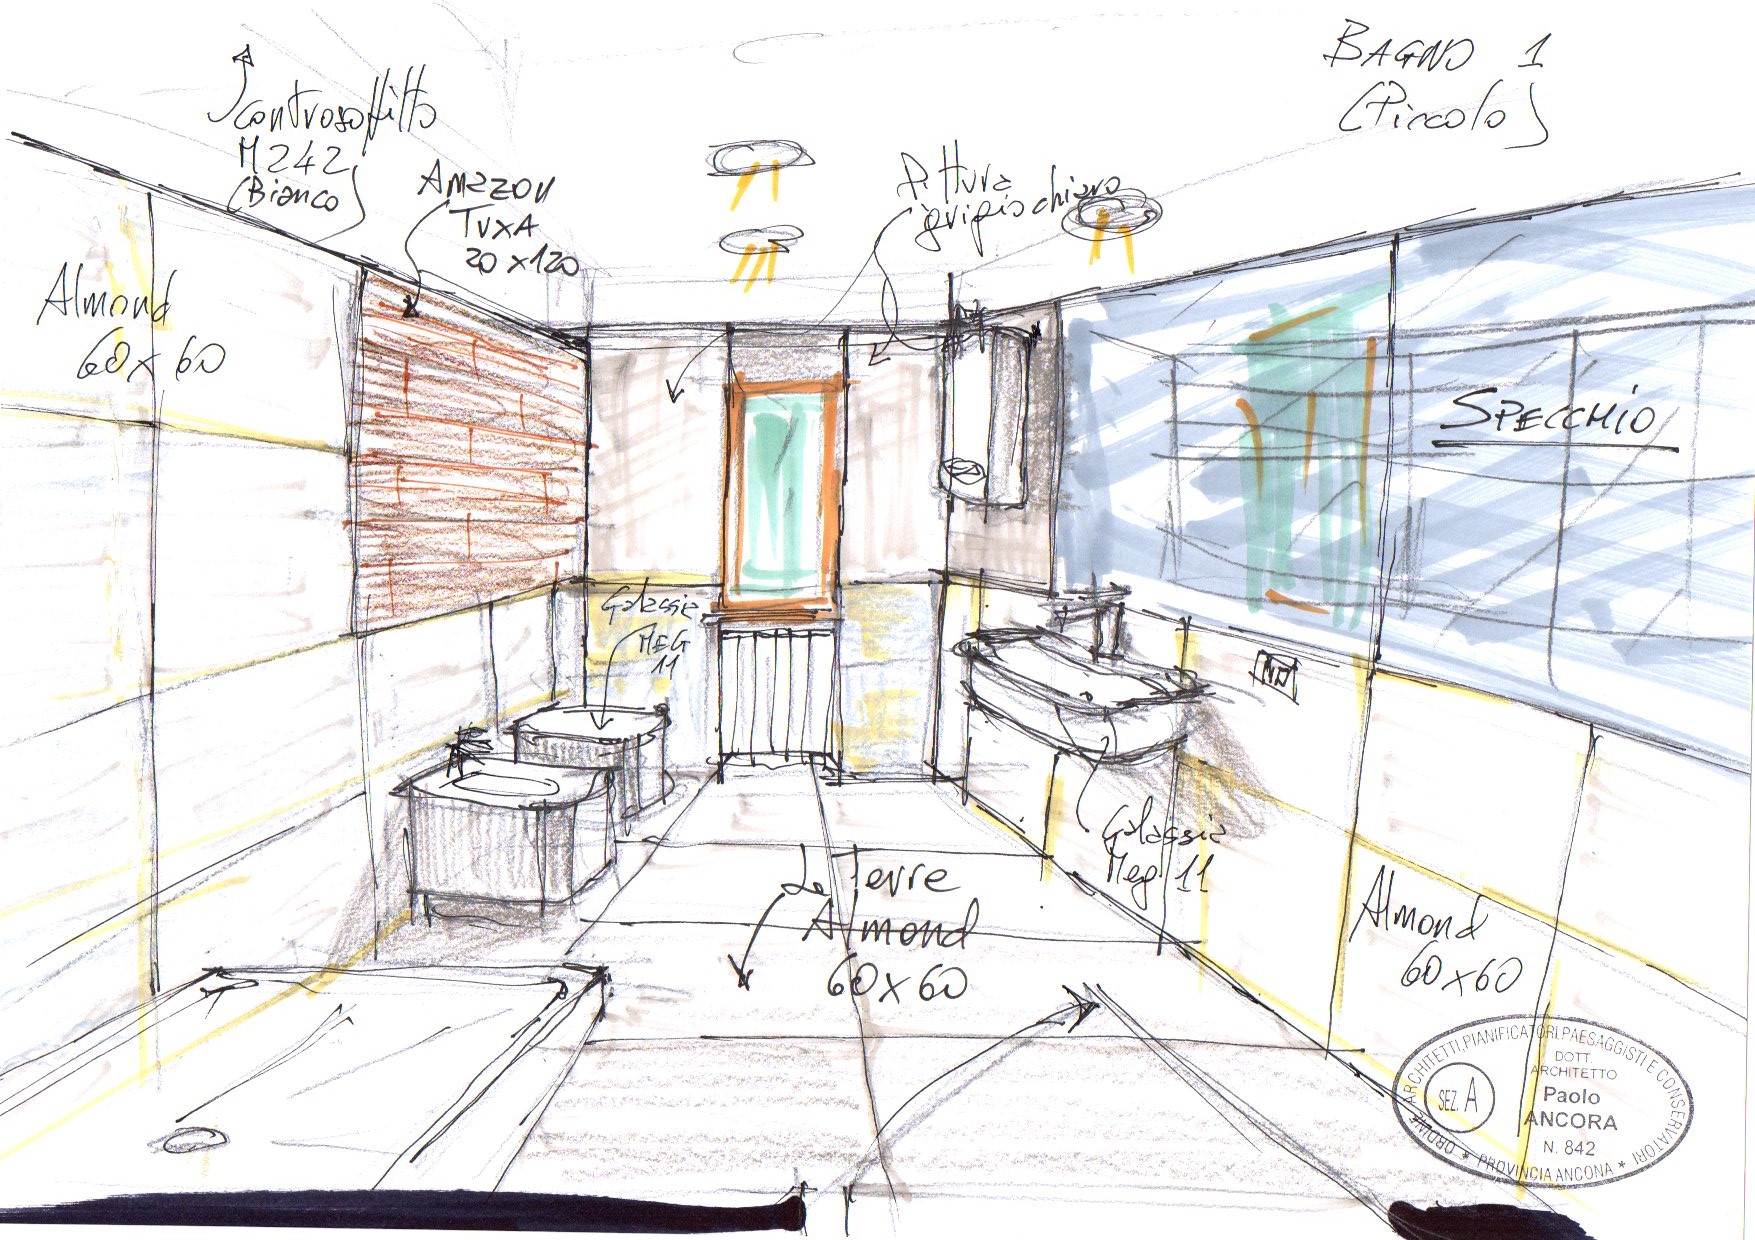 BAGNO 1
(Piccolo)
Controsoffitto
H 242
(Bianco)
Amazon
TUXA
20x120
Pittura
grigio chiaro
Almond
60x60
SPECCHIO
Galassia
MEG
11
Galassia
Meg 11
Le Terre
Almond
60x60
Almond
60x60
ORDINE ARCHITETTI,PIANIFICATORI,PAESAGGISTI E CONSERVATORI
* PROVINCIA ANCONA *
SEZ. A
DOTT.
ARCHITETTO
Paolo
ANCORA
N. 842